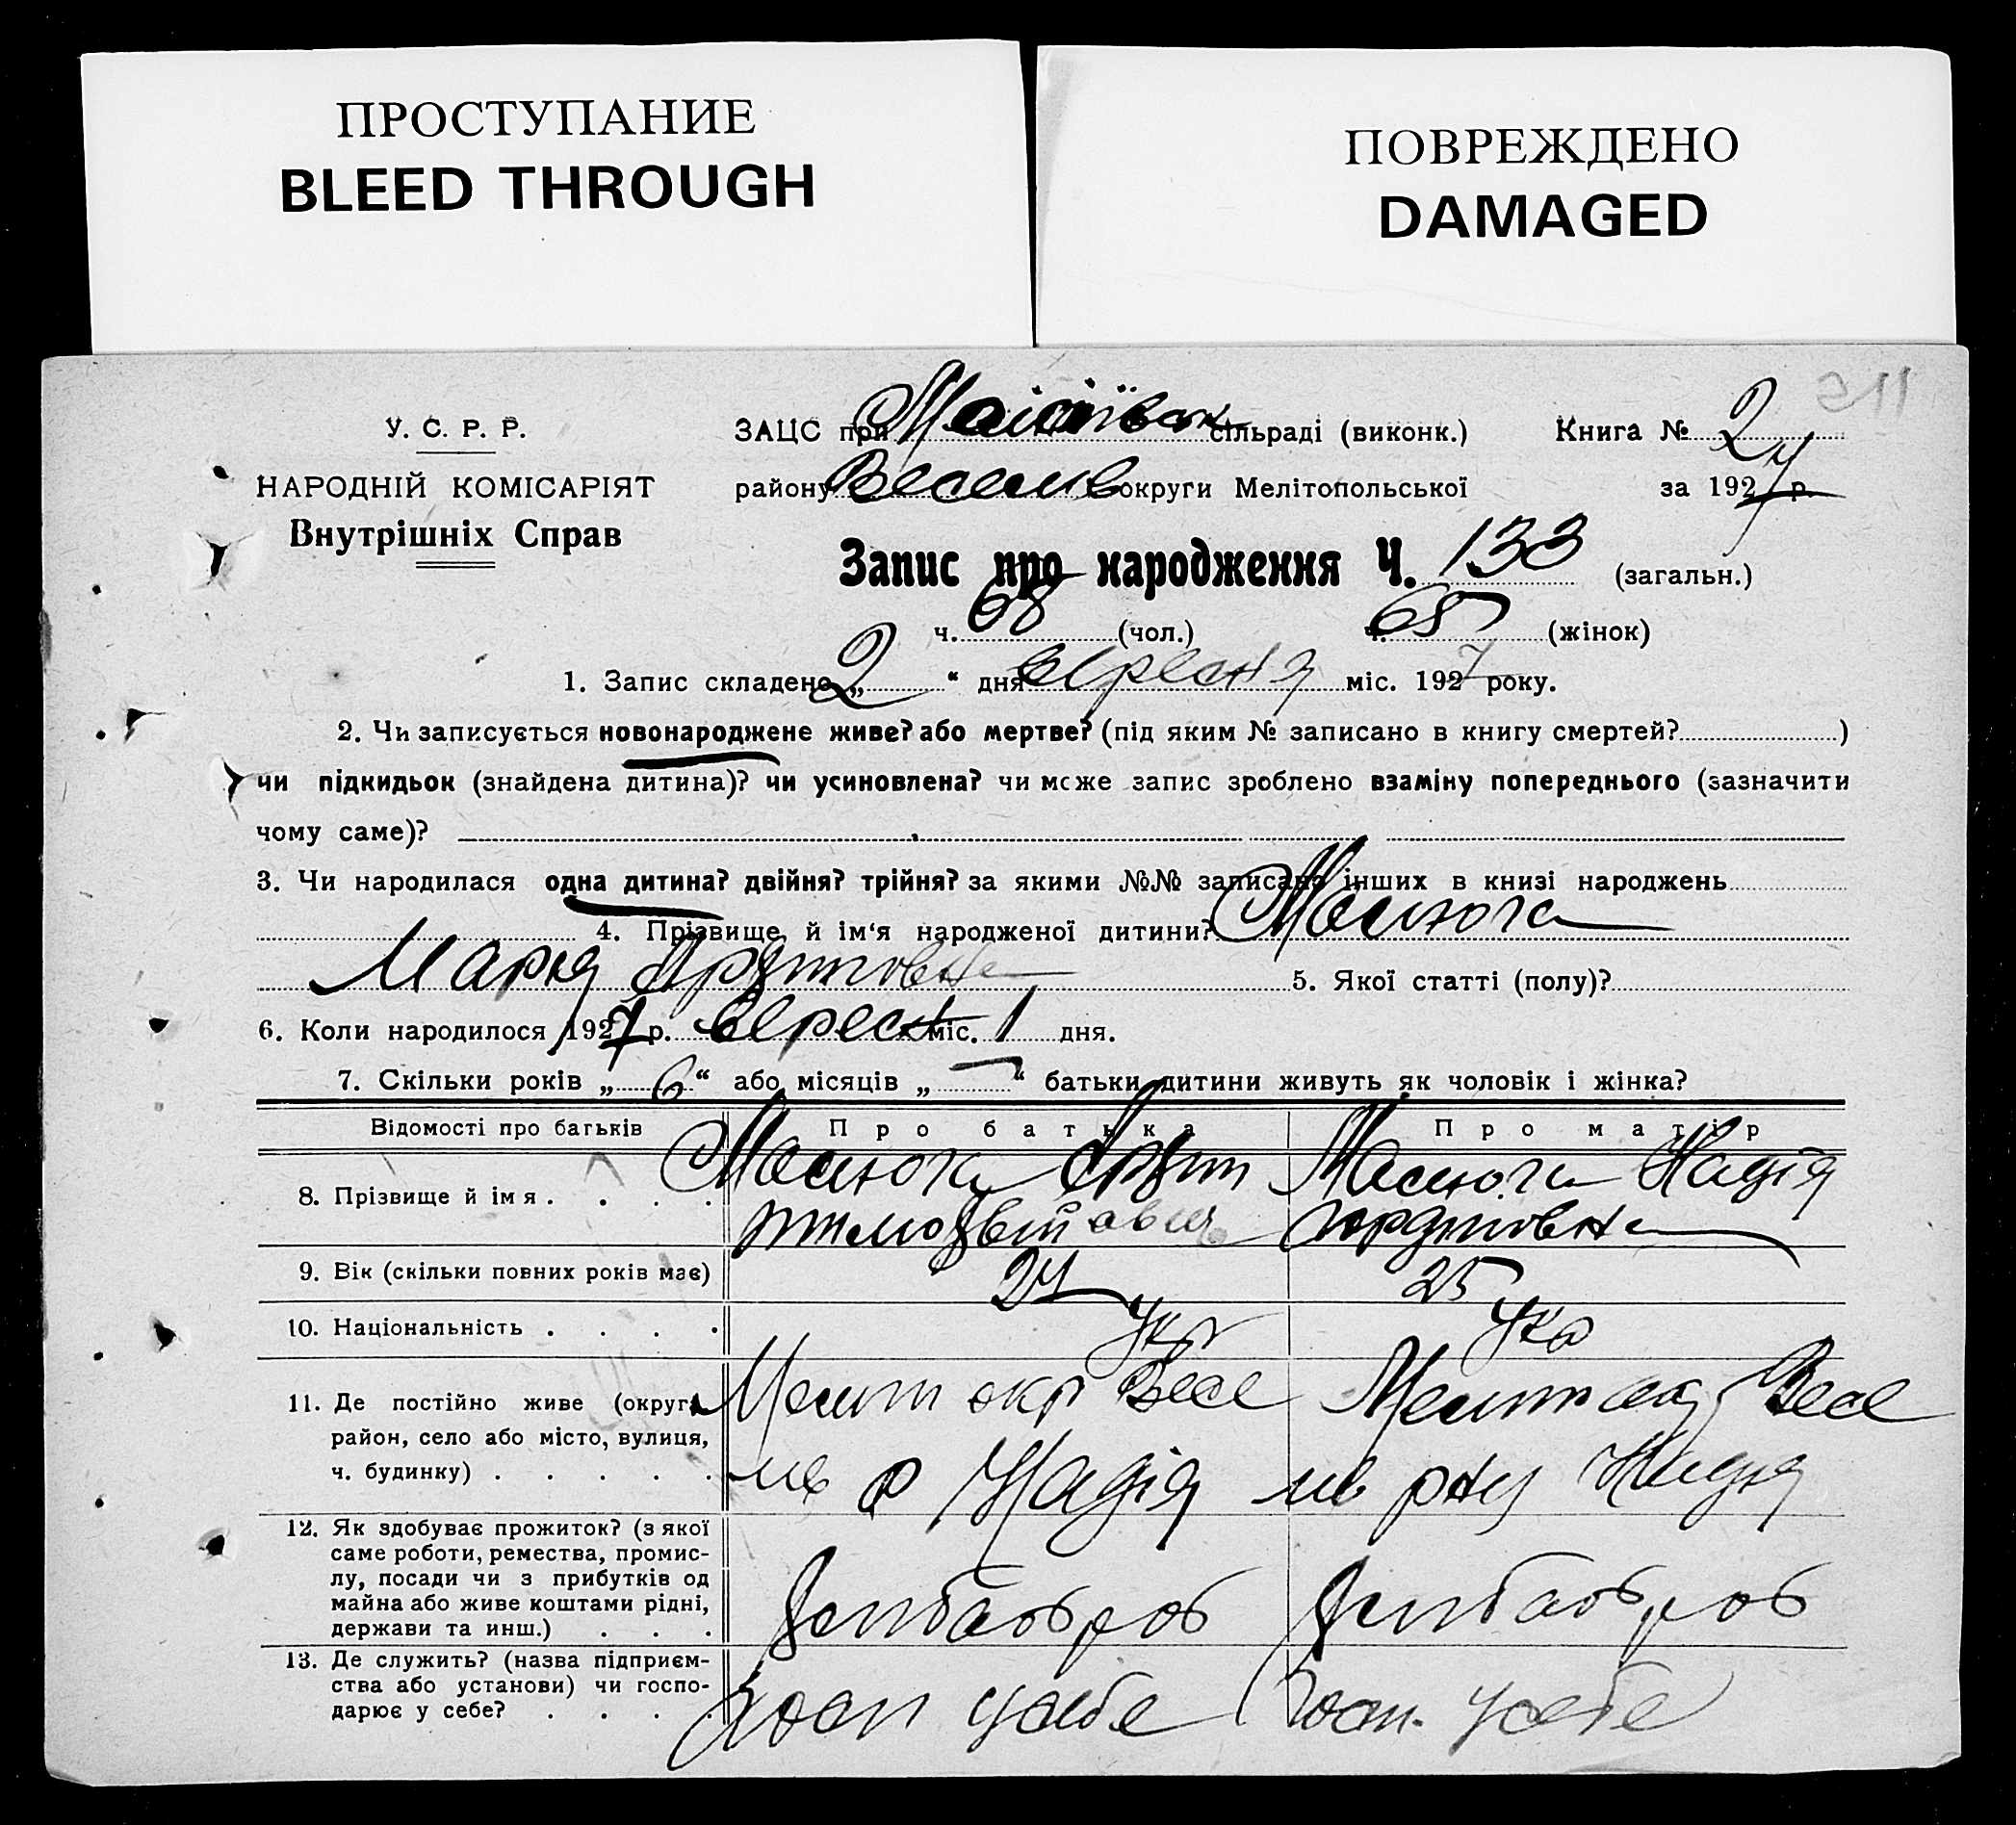 ПРОСТУПАНИЕ
BLEED THROUGH
ПОВРЕЖДЕНО
DAMAGED
У. С. Р. Р.
НАРОДНІЙ КОМІСАРІЯТ
Внутрішніх Справ
ЗАЦС при сільраді (виконк.) Книга № 2
району Веселів округи Мелітопольської за 1927 р.
Запис про народження Ч. 133 (загальн.)
ч. 68 (чол.) ч. 65 (жінок)
1. Запис складено „ 2 “ дня вересня міс. 1927 року.
2. Чи записується новонароджене живе? або мертве? (під яким № записано в книгу смертей? )
чи підкидьок (знайдена дитина)? чи усиновлена? чи може запис зроблено взаміну попереднього (зазначити
чому саме)?
3. Чи народилася одна дитина? двійня? трійня? за якими №№ записано інших в книзі народжень
4. Прізвище й ім‘я народженої дитини? Масюга
Марія 5. Якої статті (полу)?
6. Коли народилося 1927 р. вересн міс. 1 дня.
7. Скільки років „ 6 “ або місяців „ — “ батьки дитини живуть як чоловік і жінка?
Відомості про батьків Про батька Про матір
8. Прізвище й імя . . . . Масюга Масюга Надія
9. Вік (скільки повних років має) 27 25
10. Національність . . . . Укр Укр
11. Де постійно живе (округа, Мелит окр Весе Мелит окр Весе
район, село або місто, вулиця, лів р Надія лів рну Надія
ч. будинку) . . . . .
12. Як здобуває прожиток? (з якої
саме роботи, ремества, промис-
лу, посади чи з прибутків од
майна або живе коштами рідні, хлібороб хлібороб
держави та инш.) . . .
13. Де служить? (назва підприєм-
ства або установи) чи госпо- Госп у себе Госп. у себе
дарює у себе? . . . .